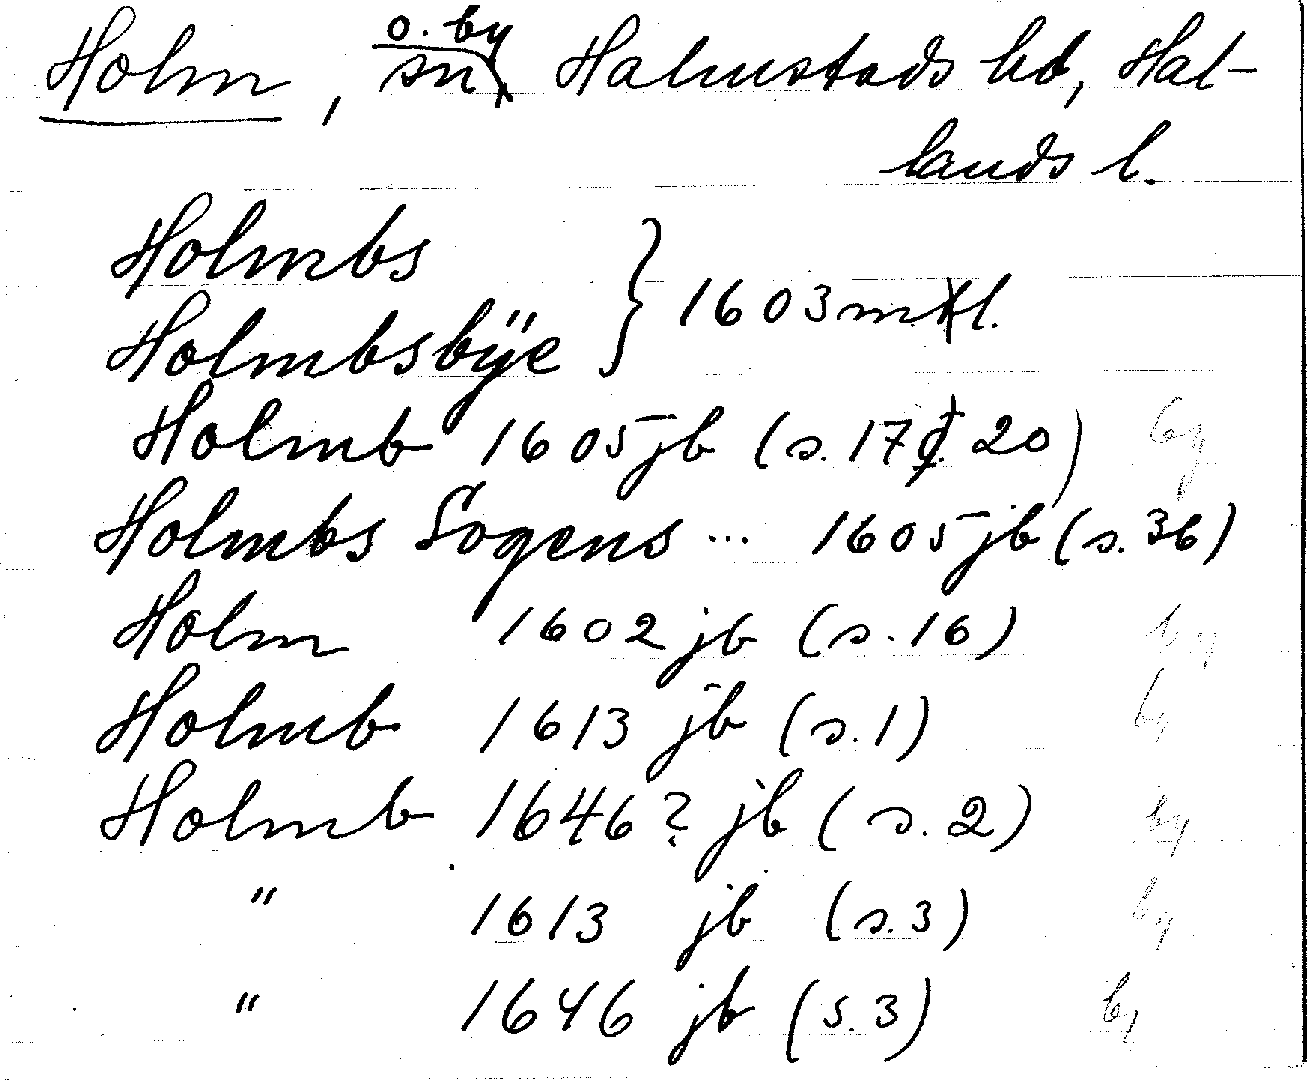 Holm, sn o. by Halmstads hd, Hal-
lands l.
Holmbs
Holmbsbÿe } 1603 mtl.
Holmb 1605 jb (s. 17 20) by
Holmbs Sogens ... 1605 jb (s. 36)
Holm 1602 jb (s. 16) by
Holmb 1613 jb (s. 1) by
Holmb 1646? jb (s. 2) by
" 1613 jb (s. 3) by
" 1646 jb (s. 3) by